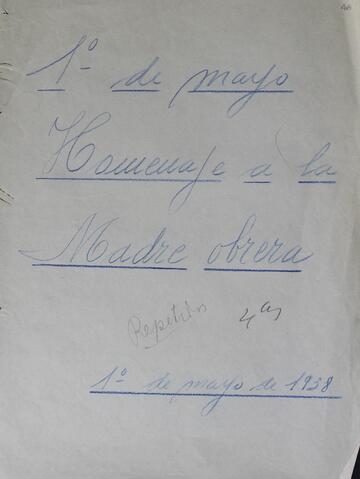 1º de mayo
Homenaje a la
Madre obrera
Repetidos 4as
1º de mayo de 1938